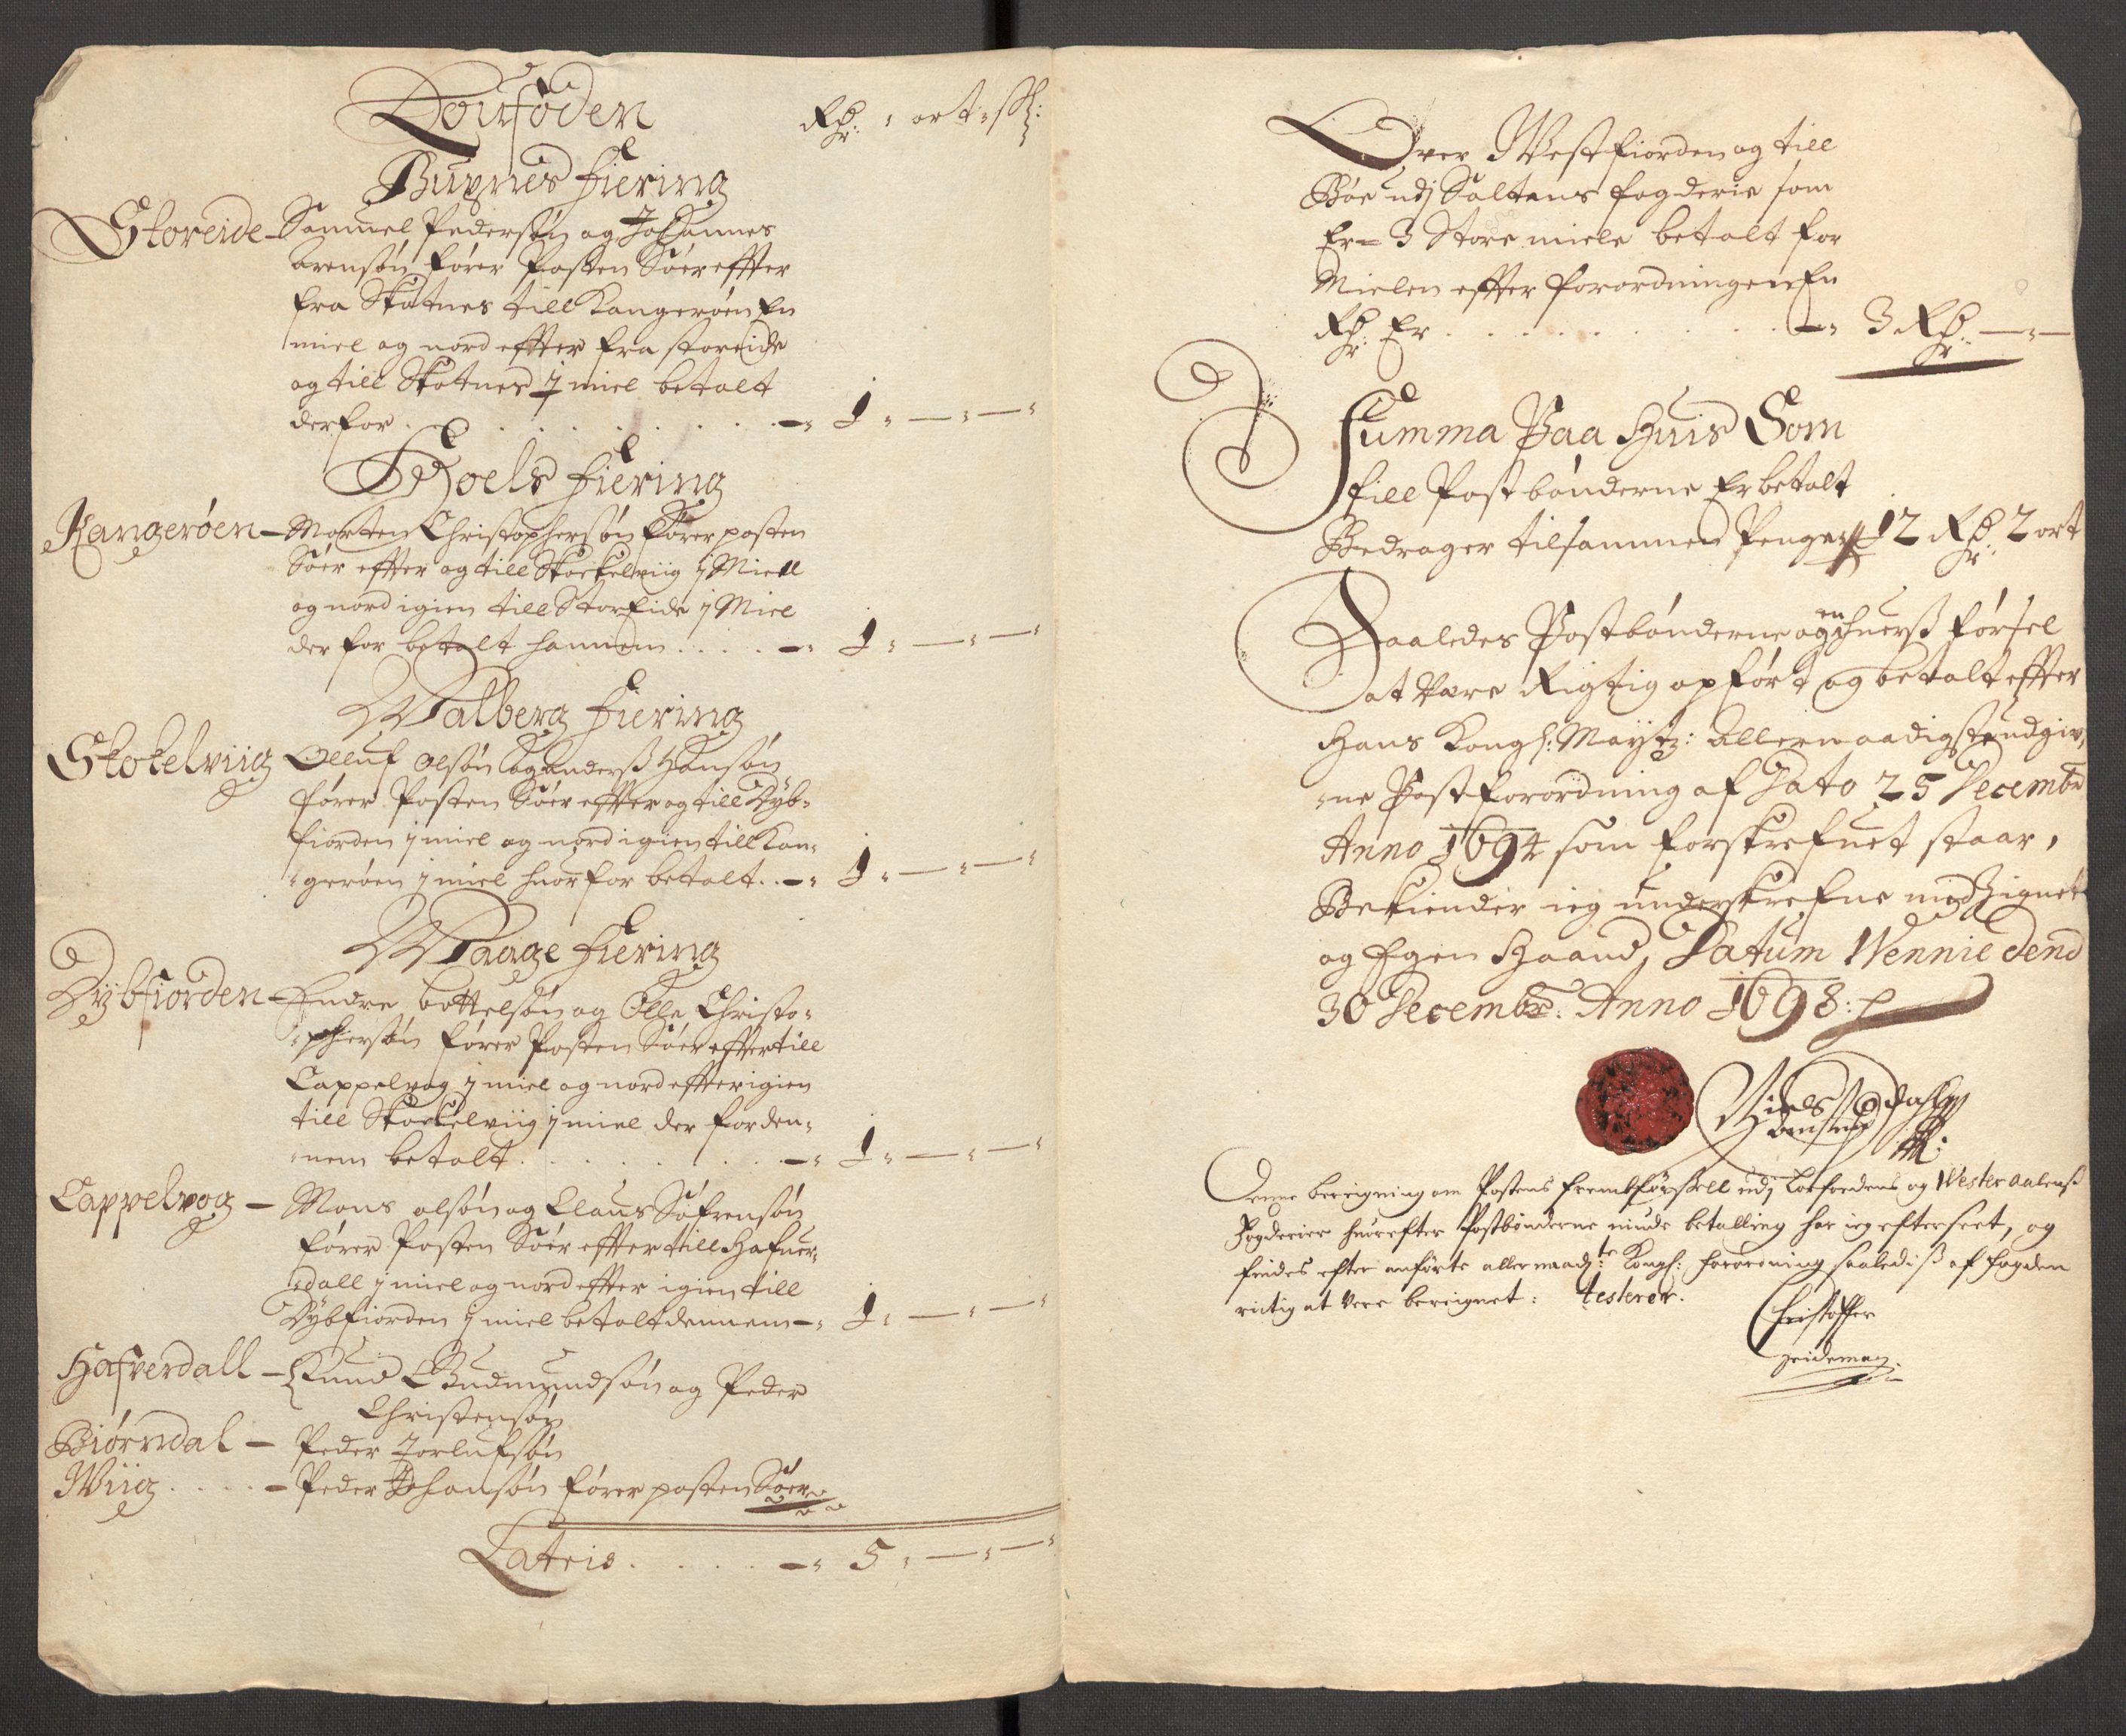 Louföden
Rdr: ort sh:
Buxnes fiering
Storeide – Samuel Pedersøn og Johannes
Arensøn fører Posten Söer effter
fra Skotnes till Kangerøen En
miel og nord effter fra storeide
og till Skotnes 1 miel betalt
derfor . . . . . . . . . . 1 " — " — "
Hoels fiering
Kangerøen – Morten Christophersøn fører posten
Söer effter og till Stockelviig 1 Miell
og nord igien till Storeide 1 Miel
der for betalt hannem . . . . . 1 " — " — "
Walberg fiering
Stokelviig Olluf Olsøn og Anderss Hansøn
fører Posten Söer effter og till Dyb-
fiorden 1 miel og nord igien till Kan-
gerøen 1 miel huorfor betalt . . 1 " — " — "
Waage fiering
Dybfiorden – Endre bottelsøn og Olle Christo-
phersøn fører Posten Söer effter till
Cappelvog 1 miel og nord effter igien
till Stockelviig 1 miel der for den-
nem betalt . . . . . . . . 1 " — " — "
Cappelvog – Mons olsøn og Claus Söfrensøn
fører Posten Söer effter till Hafuer-
dall 1 miel og nord effter igien till
Dybfiorden 1 miel betalt dennem – 1 " — " — "
Hafverdall – Knud Gudmundsøn og Peder
Christensøn
Biørndal – Peder Torlufsøn
Wiig . . . . – Peder Johansøn fører posten Söer
Lateris . . . . . 5 " — " — "
Over Westfiorden og till
Böe udj Saltens fogderie som
Er = 3 Store miele betalt for
Mielen effter forordningen En
Rdr: Er . . . . . . . . . 3 Rdr: — " —
Summa Paa Huis Som
till Postbønderne Er betalt
Bedrager tilsammen Penge 12 Rdr: 2 ort
Saaledes Postbønderne og en huerss førsel
at Være Rigtig opført og betalt effter
Hans Kongl: Maytz: Allernaadigste udgiv-
ne Post forordning af Dato 25 Decembr
Anno 1694 som forskrefuet staar,
Bekiender ieg underskrefne med Zignet
og Egen Haand, Datum Wennie dend
30 Decembr: Anno 1698:
Niels
Denne bereigning om Postens frembførsell udj Lofoedens og Westeraalens
Fogderier huorefter Postbønderne niude betalling har ieg efterseet, og
findes efter anførte allernaadte: Kongl: forordning saaledis af fogden
rictig at vere bereignet: testerer.
Christoffer
Heideman.